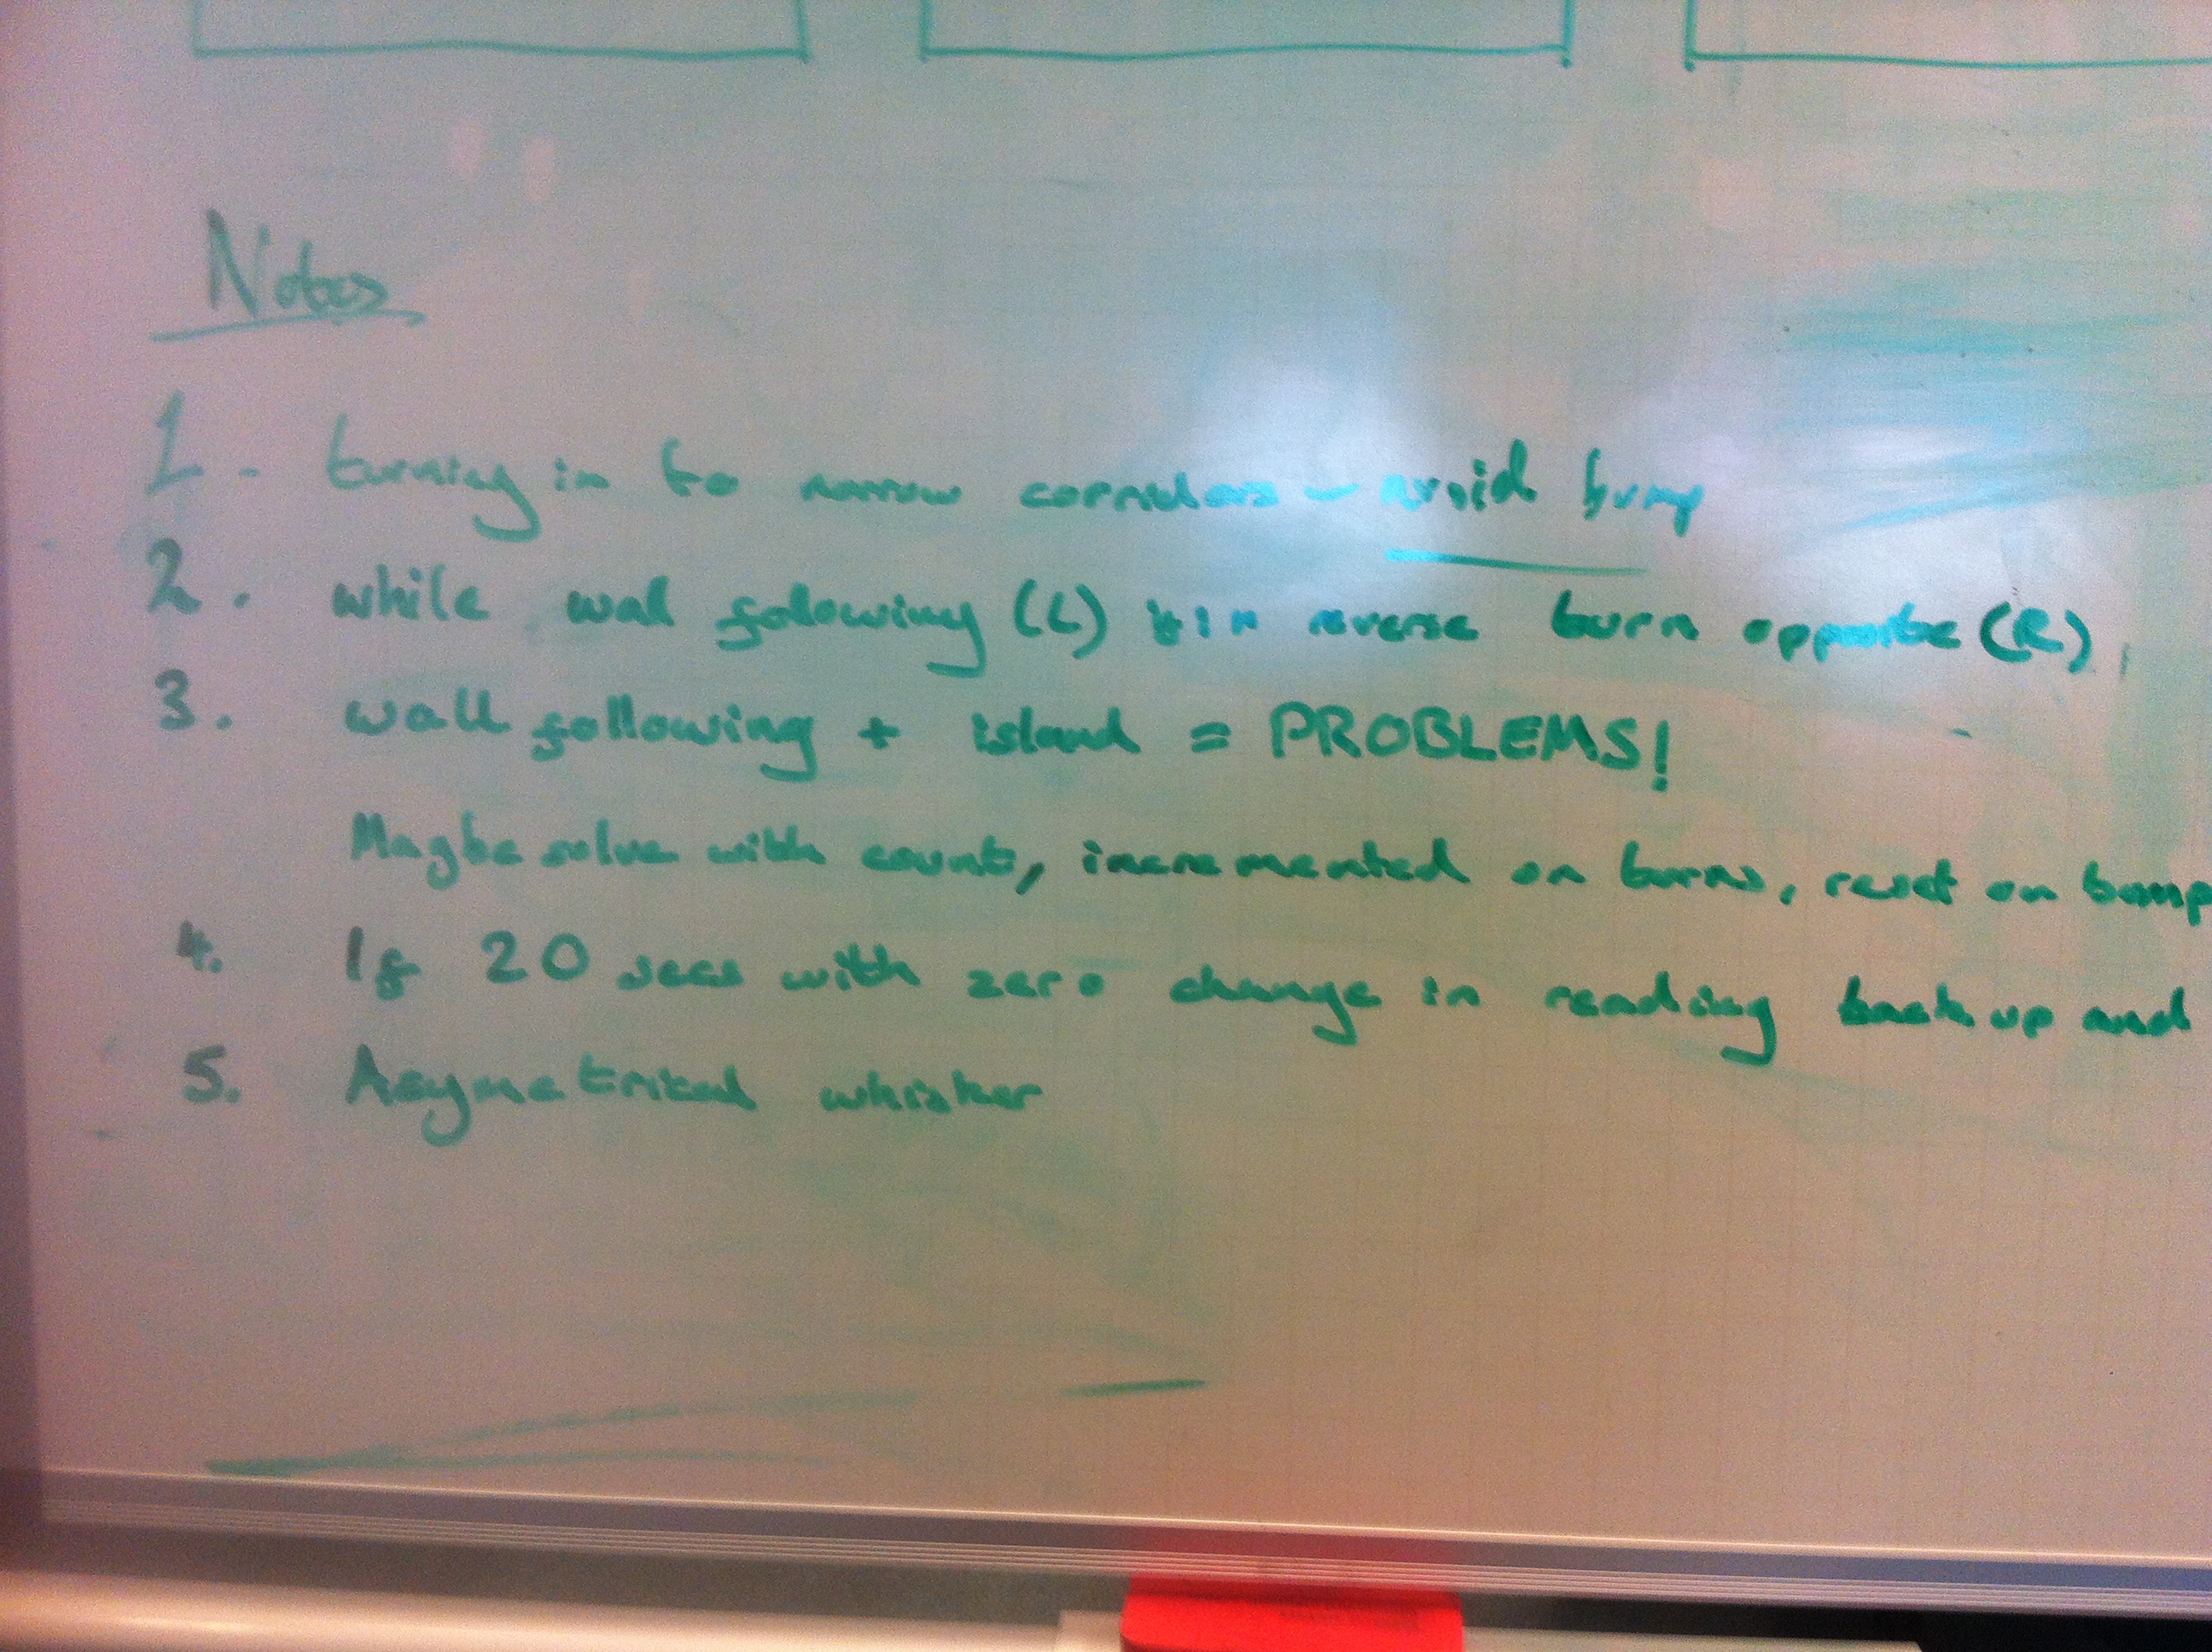 Notes
1. turning in to narrow corridors - avoid bump
2. while wal folowing (L) in reverse turn opposite (R)
3. wall following + island = PROBLEMS!
Maybe solve with count, incremented on turns, reset on bump
4. If 20 secs with zero change in reading back up and
5. Asymetrical whisker